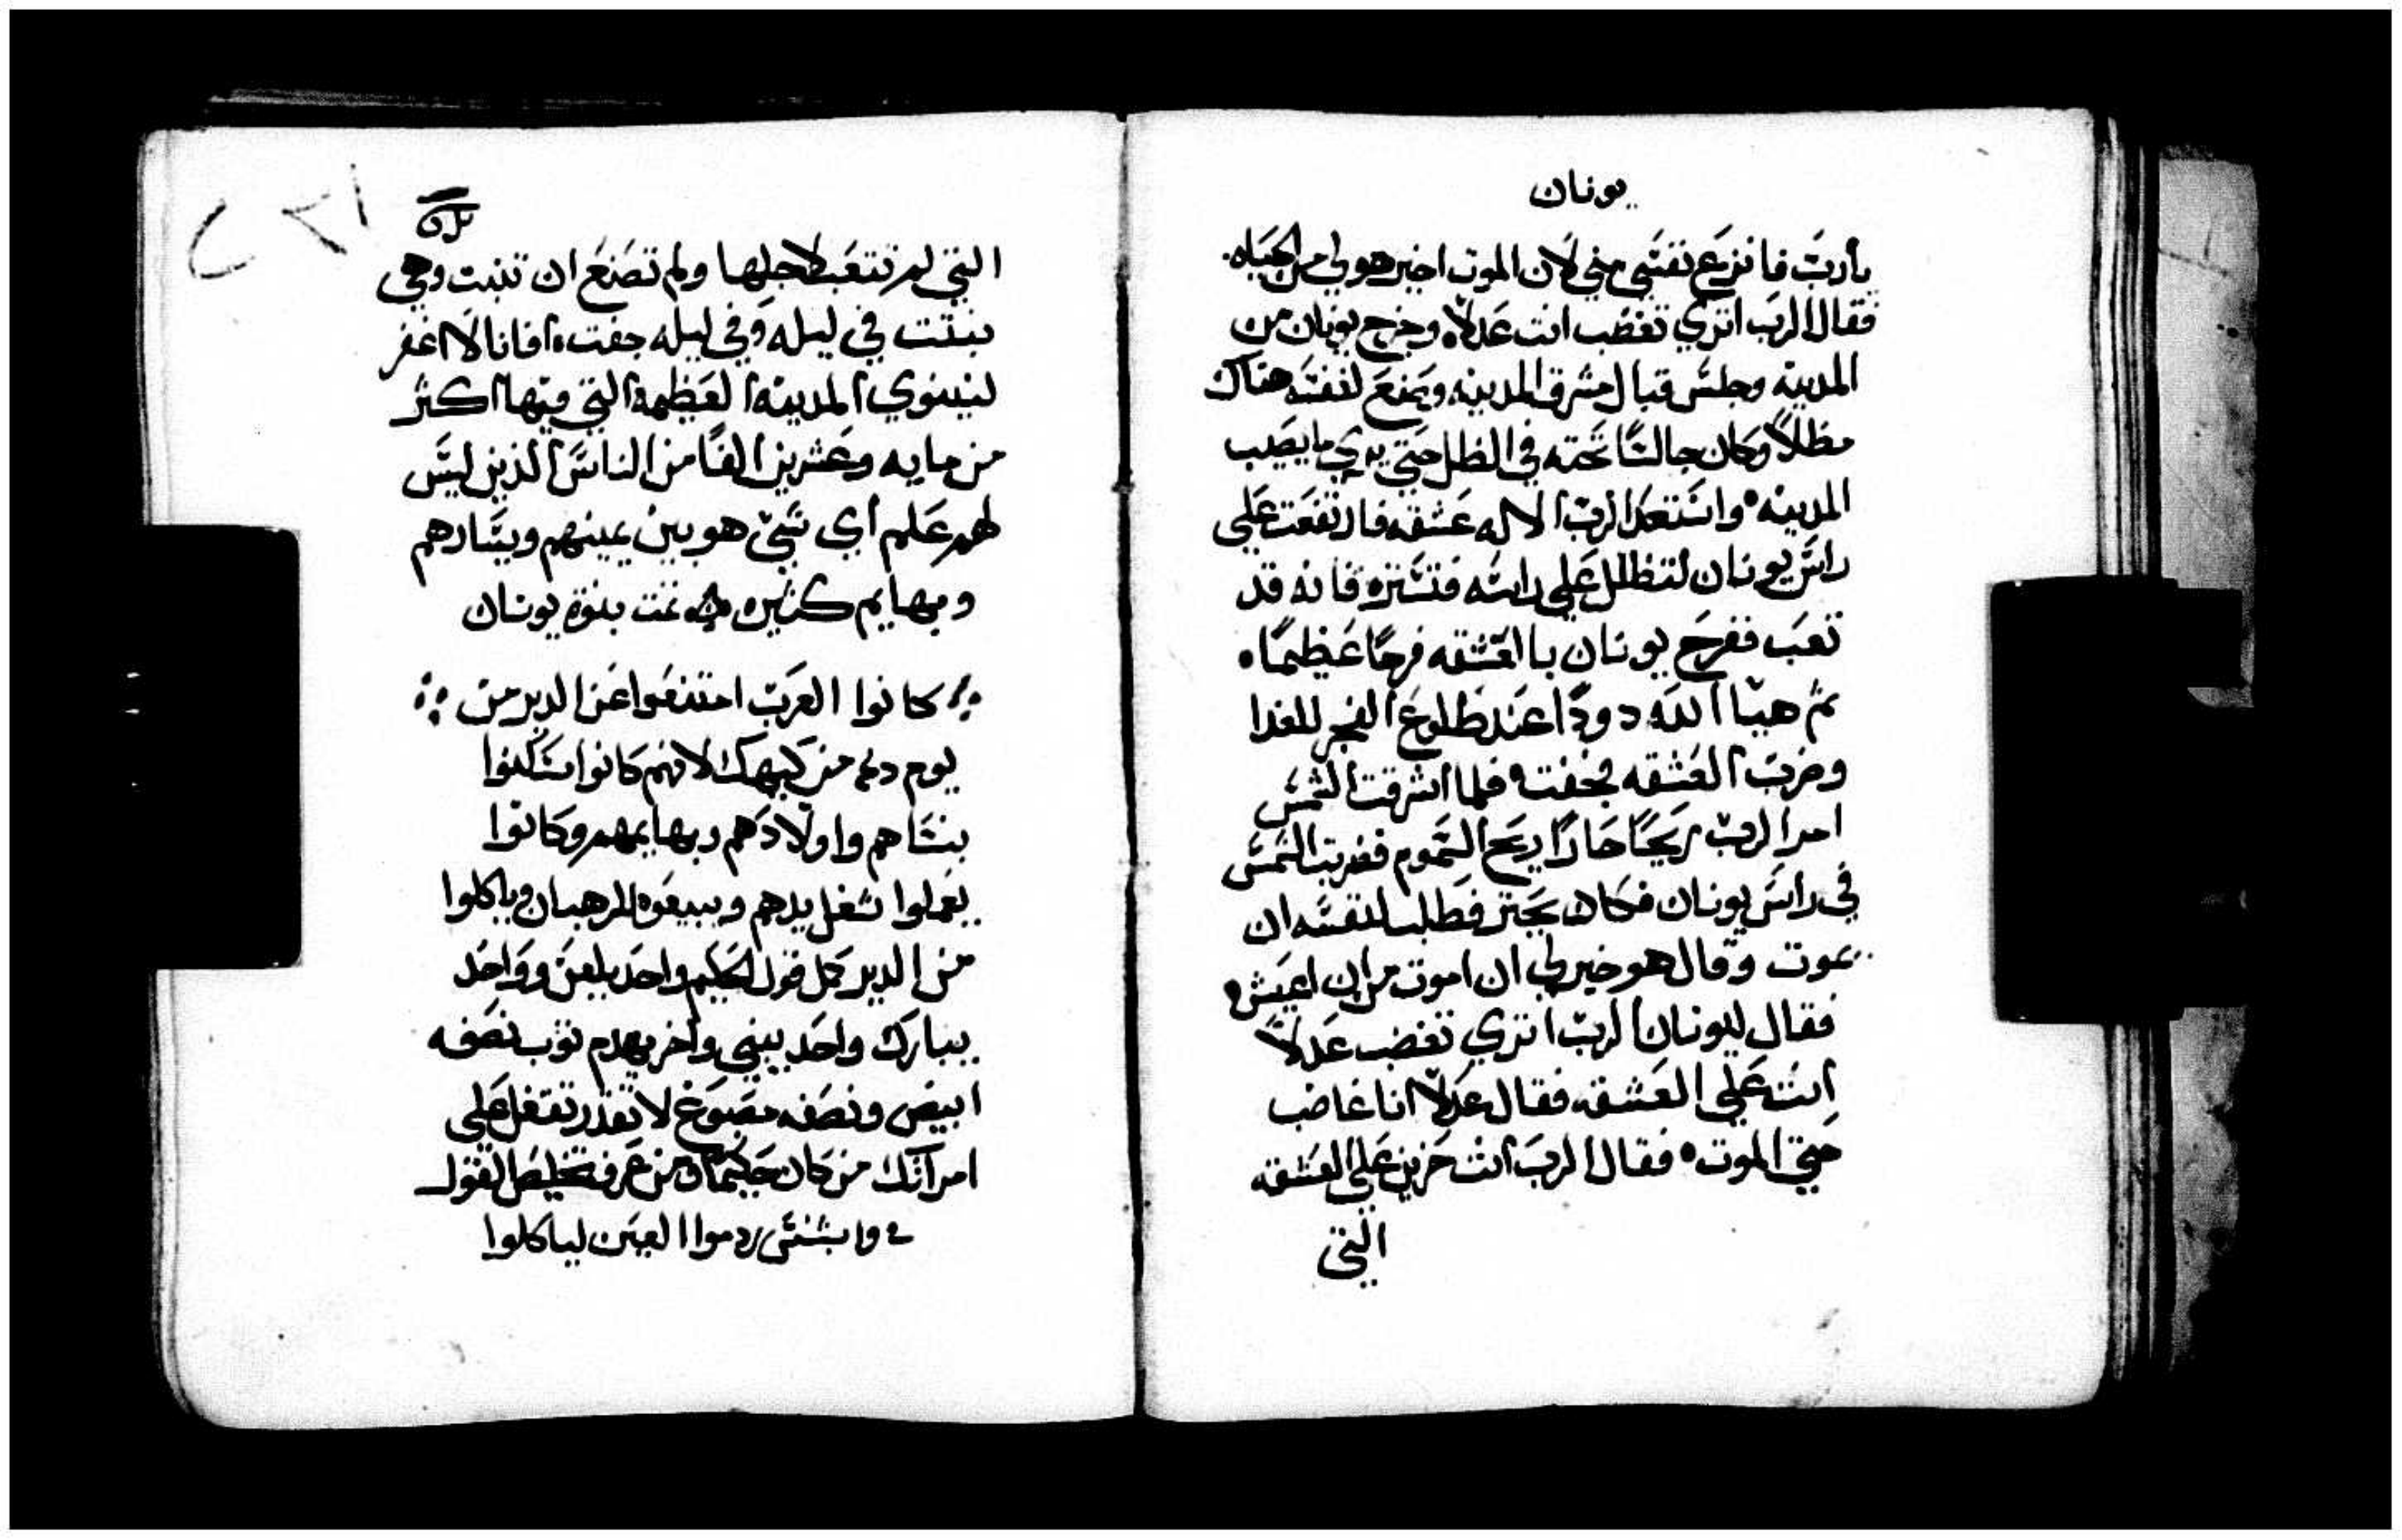 يونان
يارب فانزع نفسي مني لان الموت اخير هو لي من الحياه.
فقال الرب اتري تغضب انت عدلاً. وخرج يونان من
المدينه وجلس قبال مشرق المدينه وصنع لنفسه هناك
مظلاً وكان جالسًا تحته في الظل حتي يري ما يصيب
المدينه. واستعد الرب الاله عشقه فارتفعت علي
راس يونان لتظلل علي راسه فتستره فانه قد
تعب ففرح يونان باالعشقه فرحًا عظيمًا.
ثم هيا الله دودًا عند طلوع الفجر للغدا
وضرب العشقه فجفت. فلما اشرقت الشمس
امر الرب ريحًا حارًا ريح السموم فضربت الشمس
في راس يونان فكان يحتر فطلب لنفسه ان
يموت وقال هو خير لي ان اموت من ان اعيش.
فقال ليونان الرب اتري تغضب عدلاً
انت علي العشقه. فقال عدلاً انا غاضب
حتي الموت. فقال الرب انت حزين علي العشقه
التي
التي لم تتعب لاجلها ولم تصنع ان تنبت وهي
نبتت في ليله وفي ليله جفت. افانا لا اغفر
لنينوي المدينه العظيمه التي فيها اكثر
من مايه وعشرين الفًا من الناس الذين ليس
لهم علم اي شي هو بين يمينهم ويسارهم
وبهايم كثيره تمت بنوة يونان
كانوا العرب امتنعوا عن الدير من
يوم من كيهك لانهم كانوا
بنساهم واولادهم وبهايمهم وكانوا
يعملوا شغل يدهم ويبيعوه للرهبان وياكلوا
من الدير كمل قول الحكيم واحد يلعن وواحد
يبارك واحد يبني واخر يهدم ثوب نصفه
ابيض ونصفه مصبوغ لا تقدر تقفل علي
امراتك من كان حكيمًا من عرف تخليص القول
ردموا العين لياكلوا